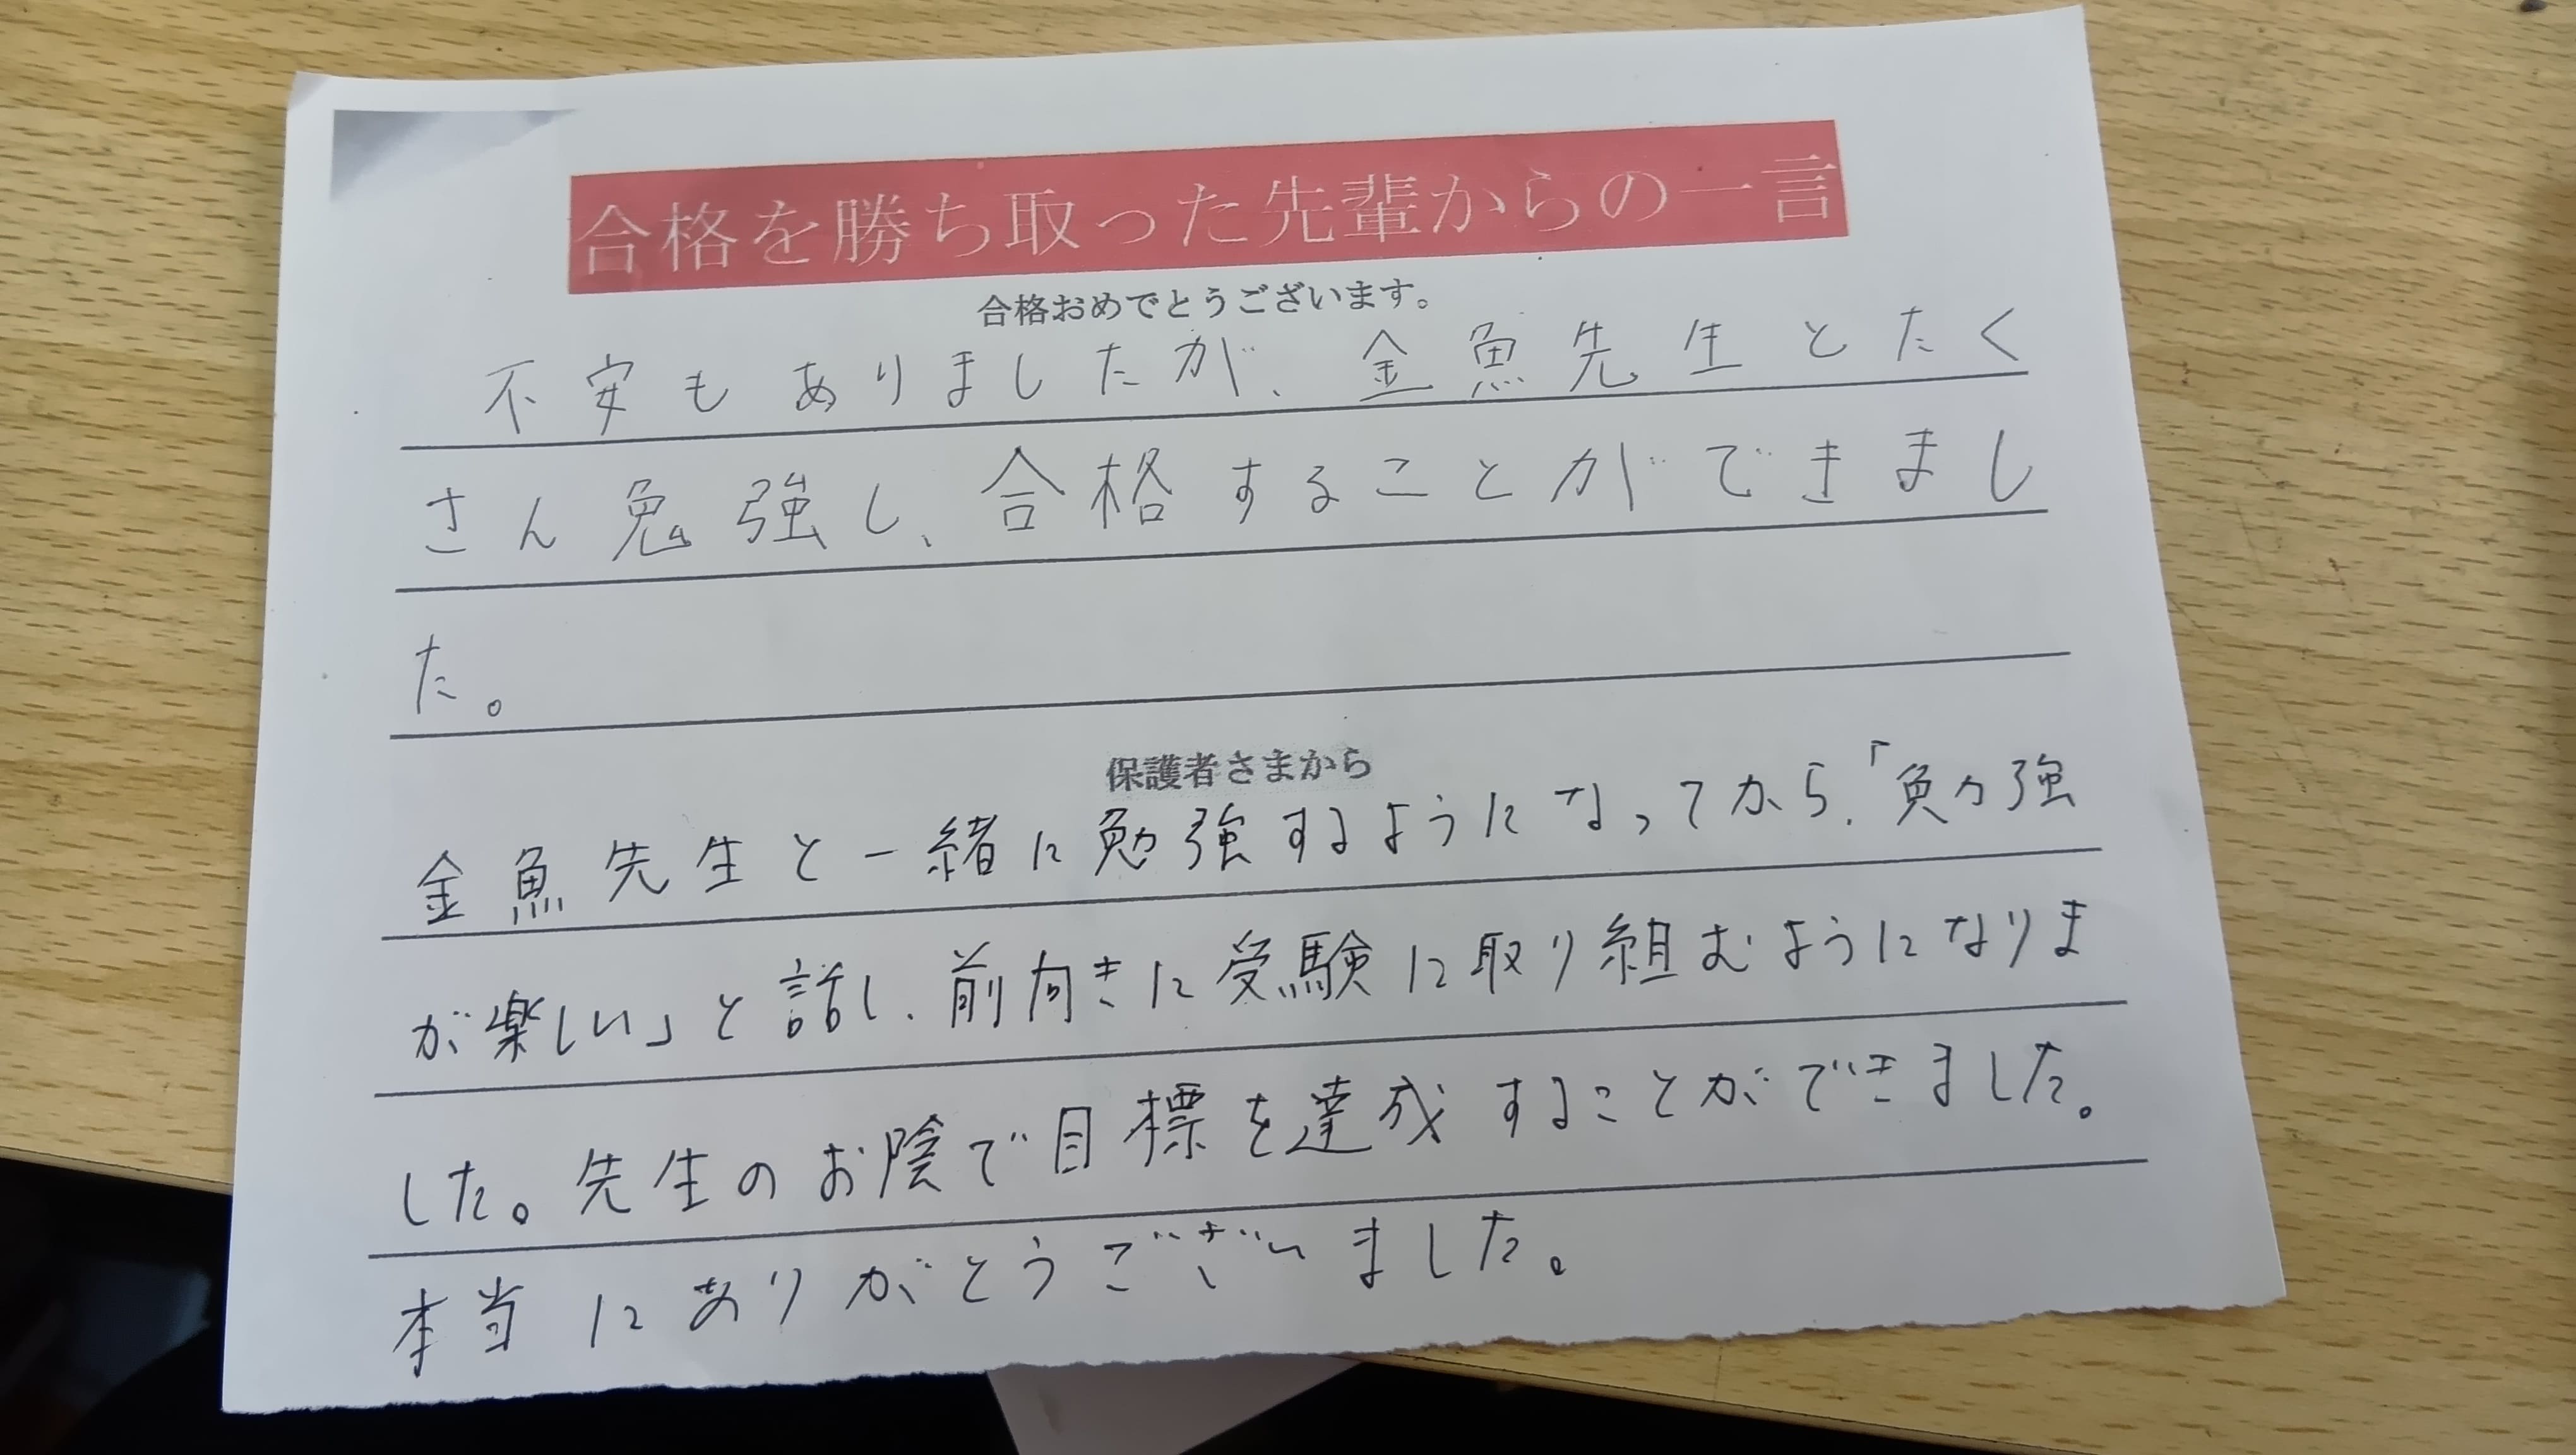 合格を勝ち取った先輩からの一言
合格おめでとうございます。
不安もありましたが、金魚先生とたく
さん勉強し、合格することができまし
た。
保護者さまから
金魚先生と一緒に勉強するようになってから、「勉強
が楽しい」と話し、前向きに受験に取り組むようになりま
した。先生のお陰で目標を達成することができました。
本当にありがとうございました。